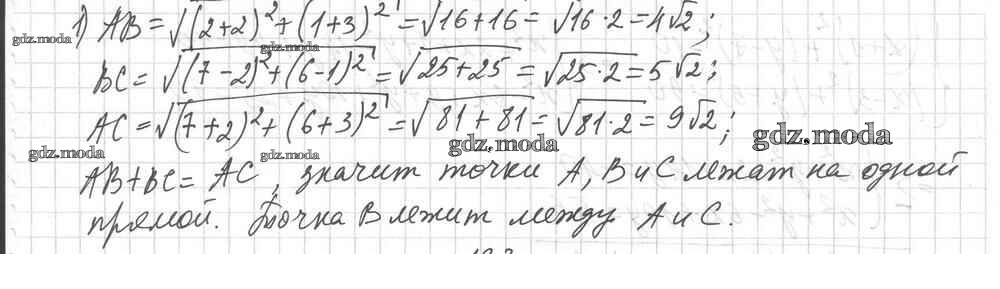 1) AB = √((2+2)² + (1+3)²) = √16+16 = √16·2 = 4√2;
gdz.moda
gdz.moda
BC = √((7-2)² + (6-1)²) = √25+25 = √25·2 = 5√2;
AC = √((7+2)² + (6+3)²) = √81+81 = √81·2 = 9√2;
gdz.moda
gdz.moda
gdz.moda
gdz.moda
AB+BC = AC, значит точки A, B и C лежат на одной
прямой. Точка B лежит между A и C.
gdz.moda